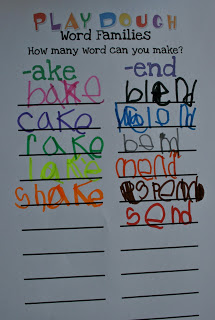 PLAY DOUGH
Word Families
How many word can you make?
-ake
bake
cake
rake
lake
shake
-end
blend
bend
mend
spend
send